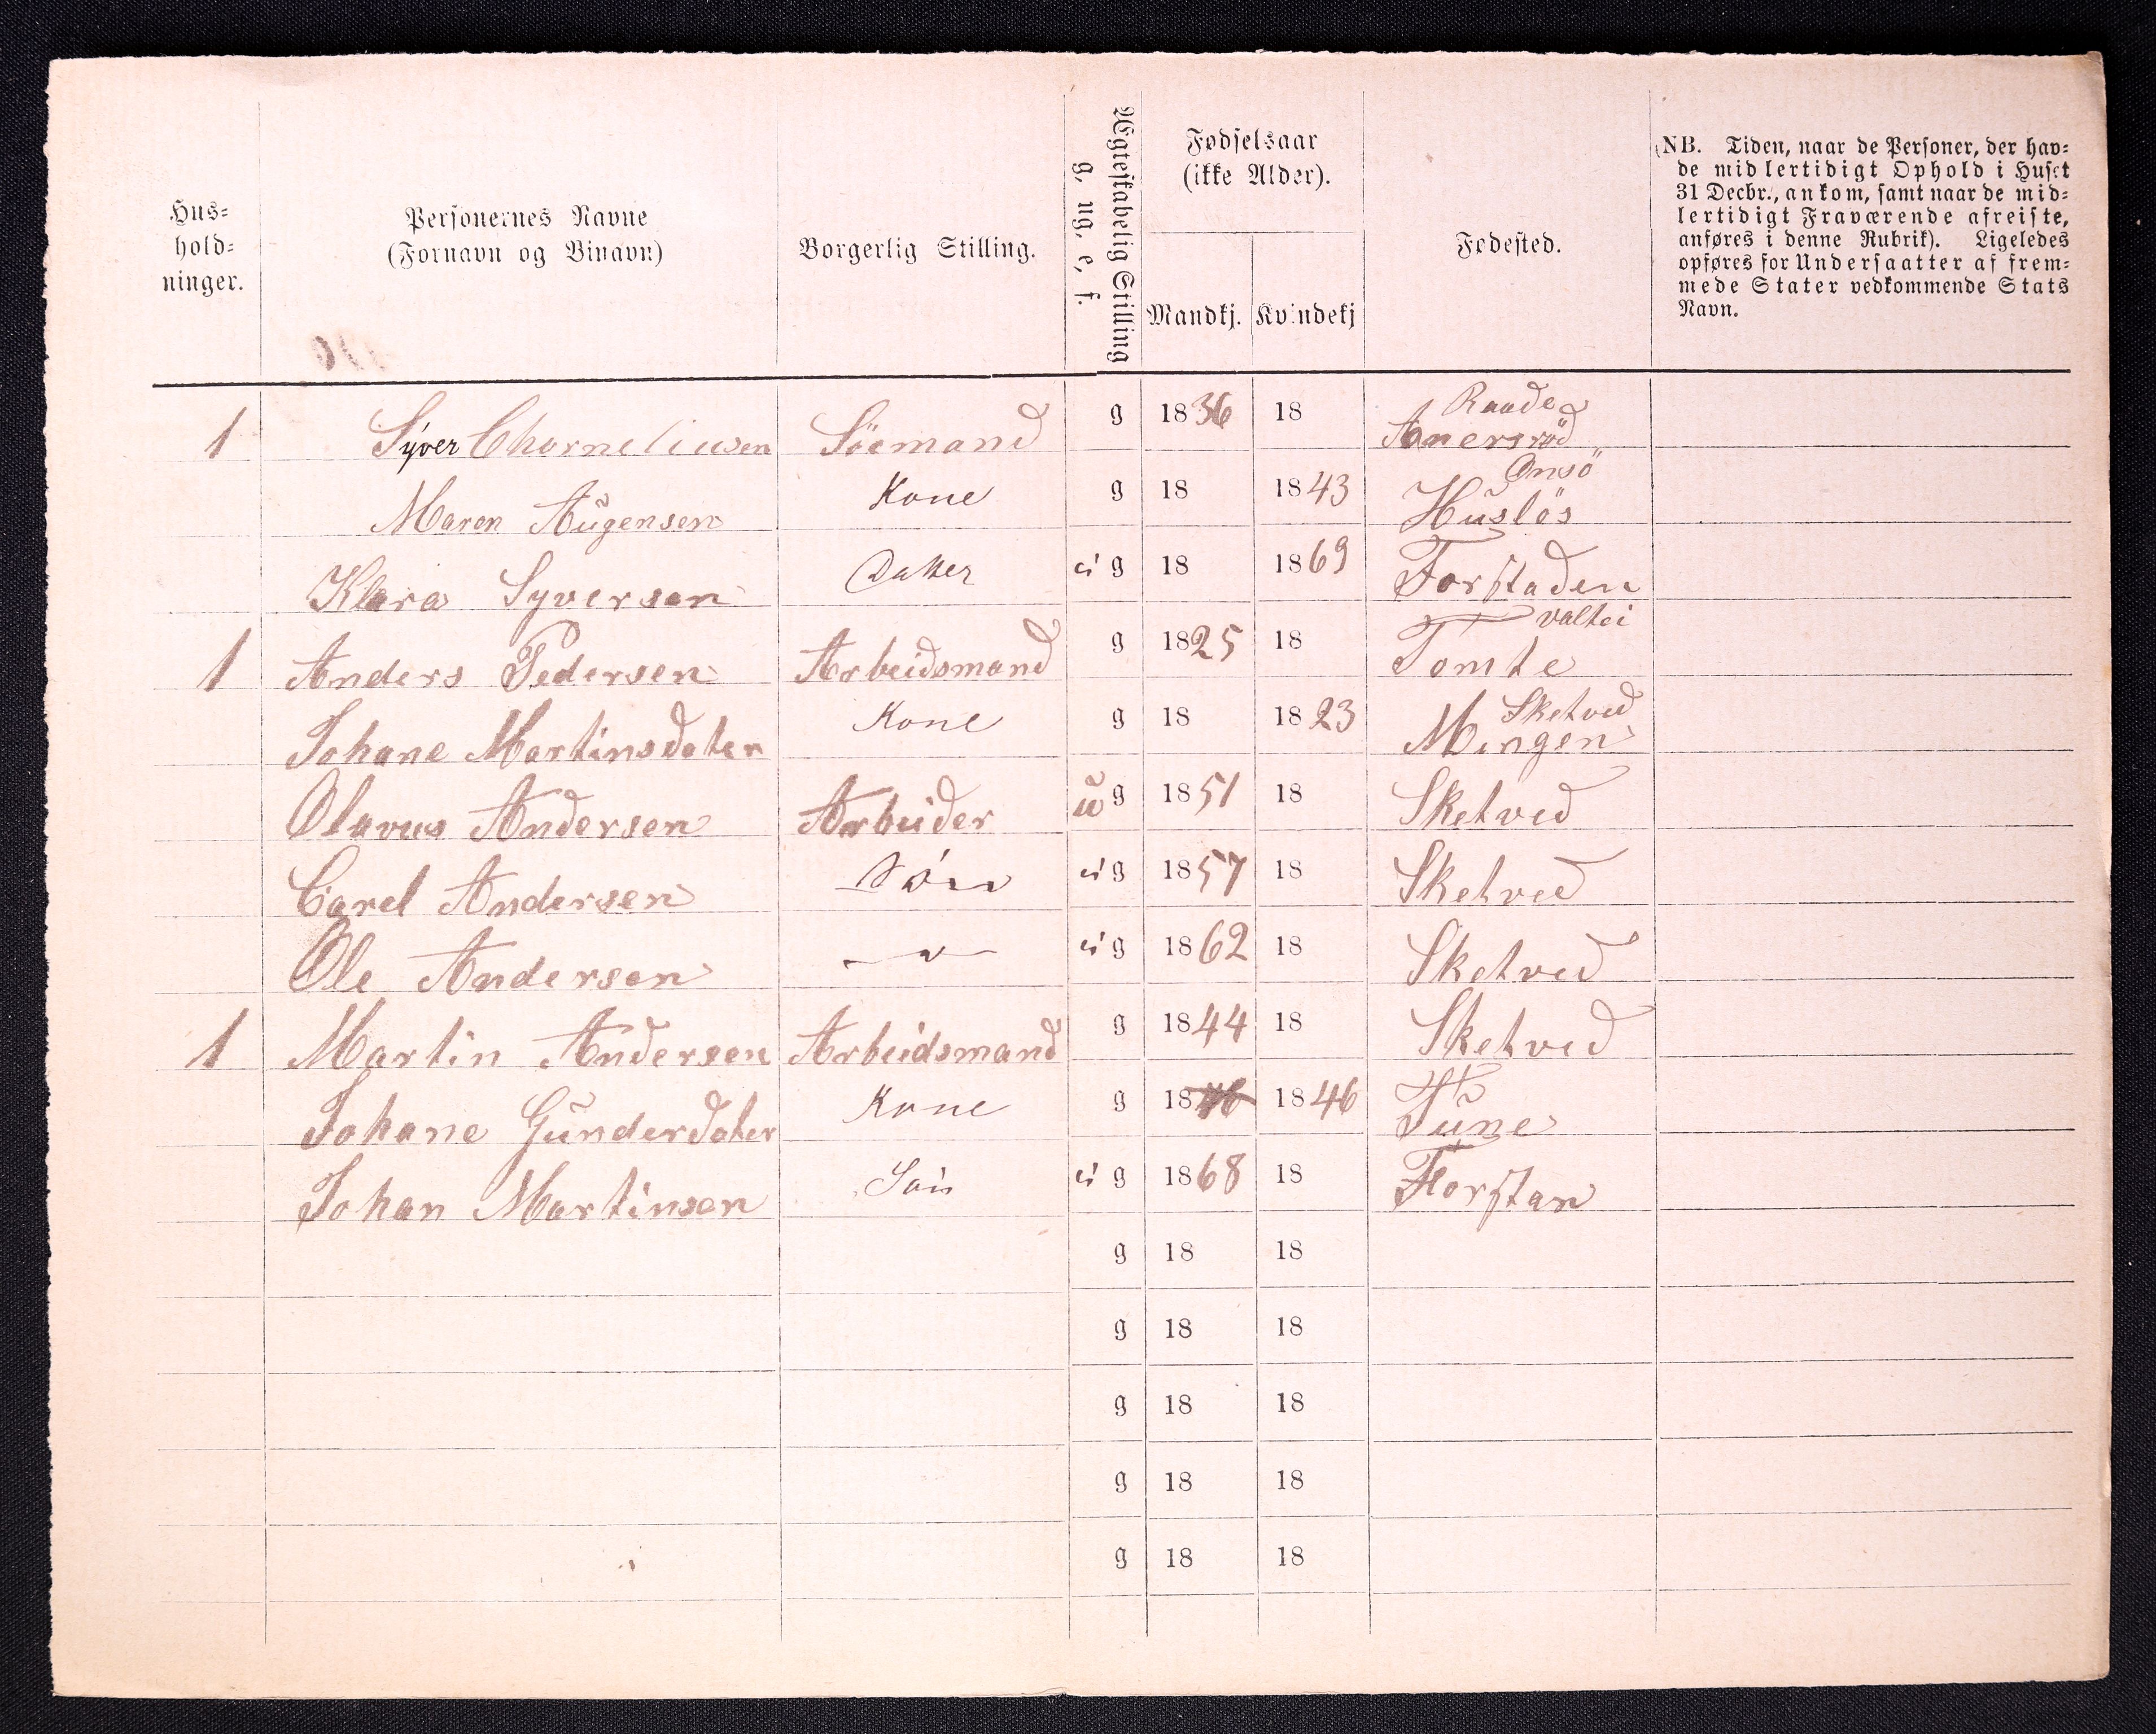 Hus-
hold-
ninger.
Personernes Navne
(Fornavn og Binavn)
Borgerlig Stilling.
Ægteskabelig Stilling
g, ug, e, f.
Fødselsaar
(ikke Alder).
Mandkj. Kvindekj
Fødested.
(NB. Tiden, naar de Personer, der hav-
de midlertidigt Ophold i Huset
31 Decbr., ankom, samt naar de mid-
lertidigt Fraværende afreiste,
anføres i denne Rubrik). Ligeledes
opføres for Undersaatter af frem-
mede Stater vedkommende Stats
Navn.
Raade
1 Syver Chorneliusen Söemand g 1836 18 Anersröd
Onsö
Maren Augensen Kone g 18 1843 Huslös
Klara Syversen Datter ug 18 1869 Forstaden
1 Anders Pedersen Arbeidsmand g 1825 18 Tomte
Sketved
Johane Martinsdater Kone g 18 1823 Mingen
Olavus Andersen Arbeider ug 1851 18 Sketved
Carel Andersen Sön ug 1857 18 Sketved
Ole Andersen — " — ug 1862 18 Sketved
1 Martin Andersen Arbeidsmand g 1844 18 Sketved
Johane Gunderdater Kone g 1846 1846 Tune
Johan Martinsen Sön ug 1868 18 Forstan
g 18 18
g 18 18
g 18 18
g 18 18
g 18 18